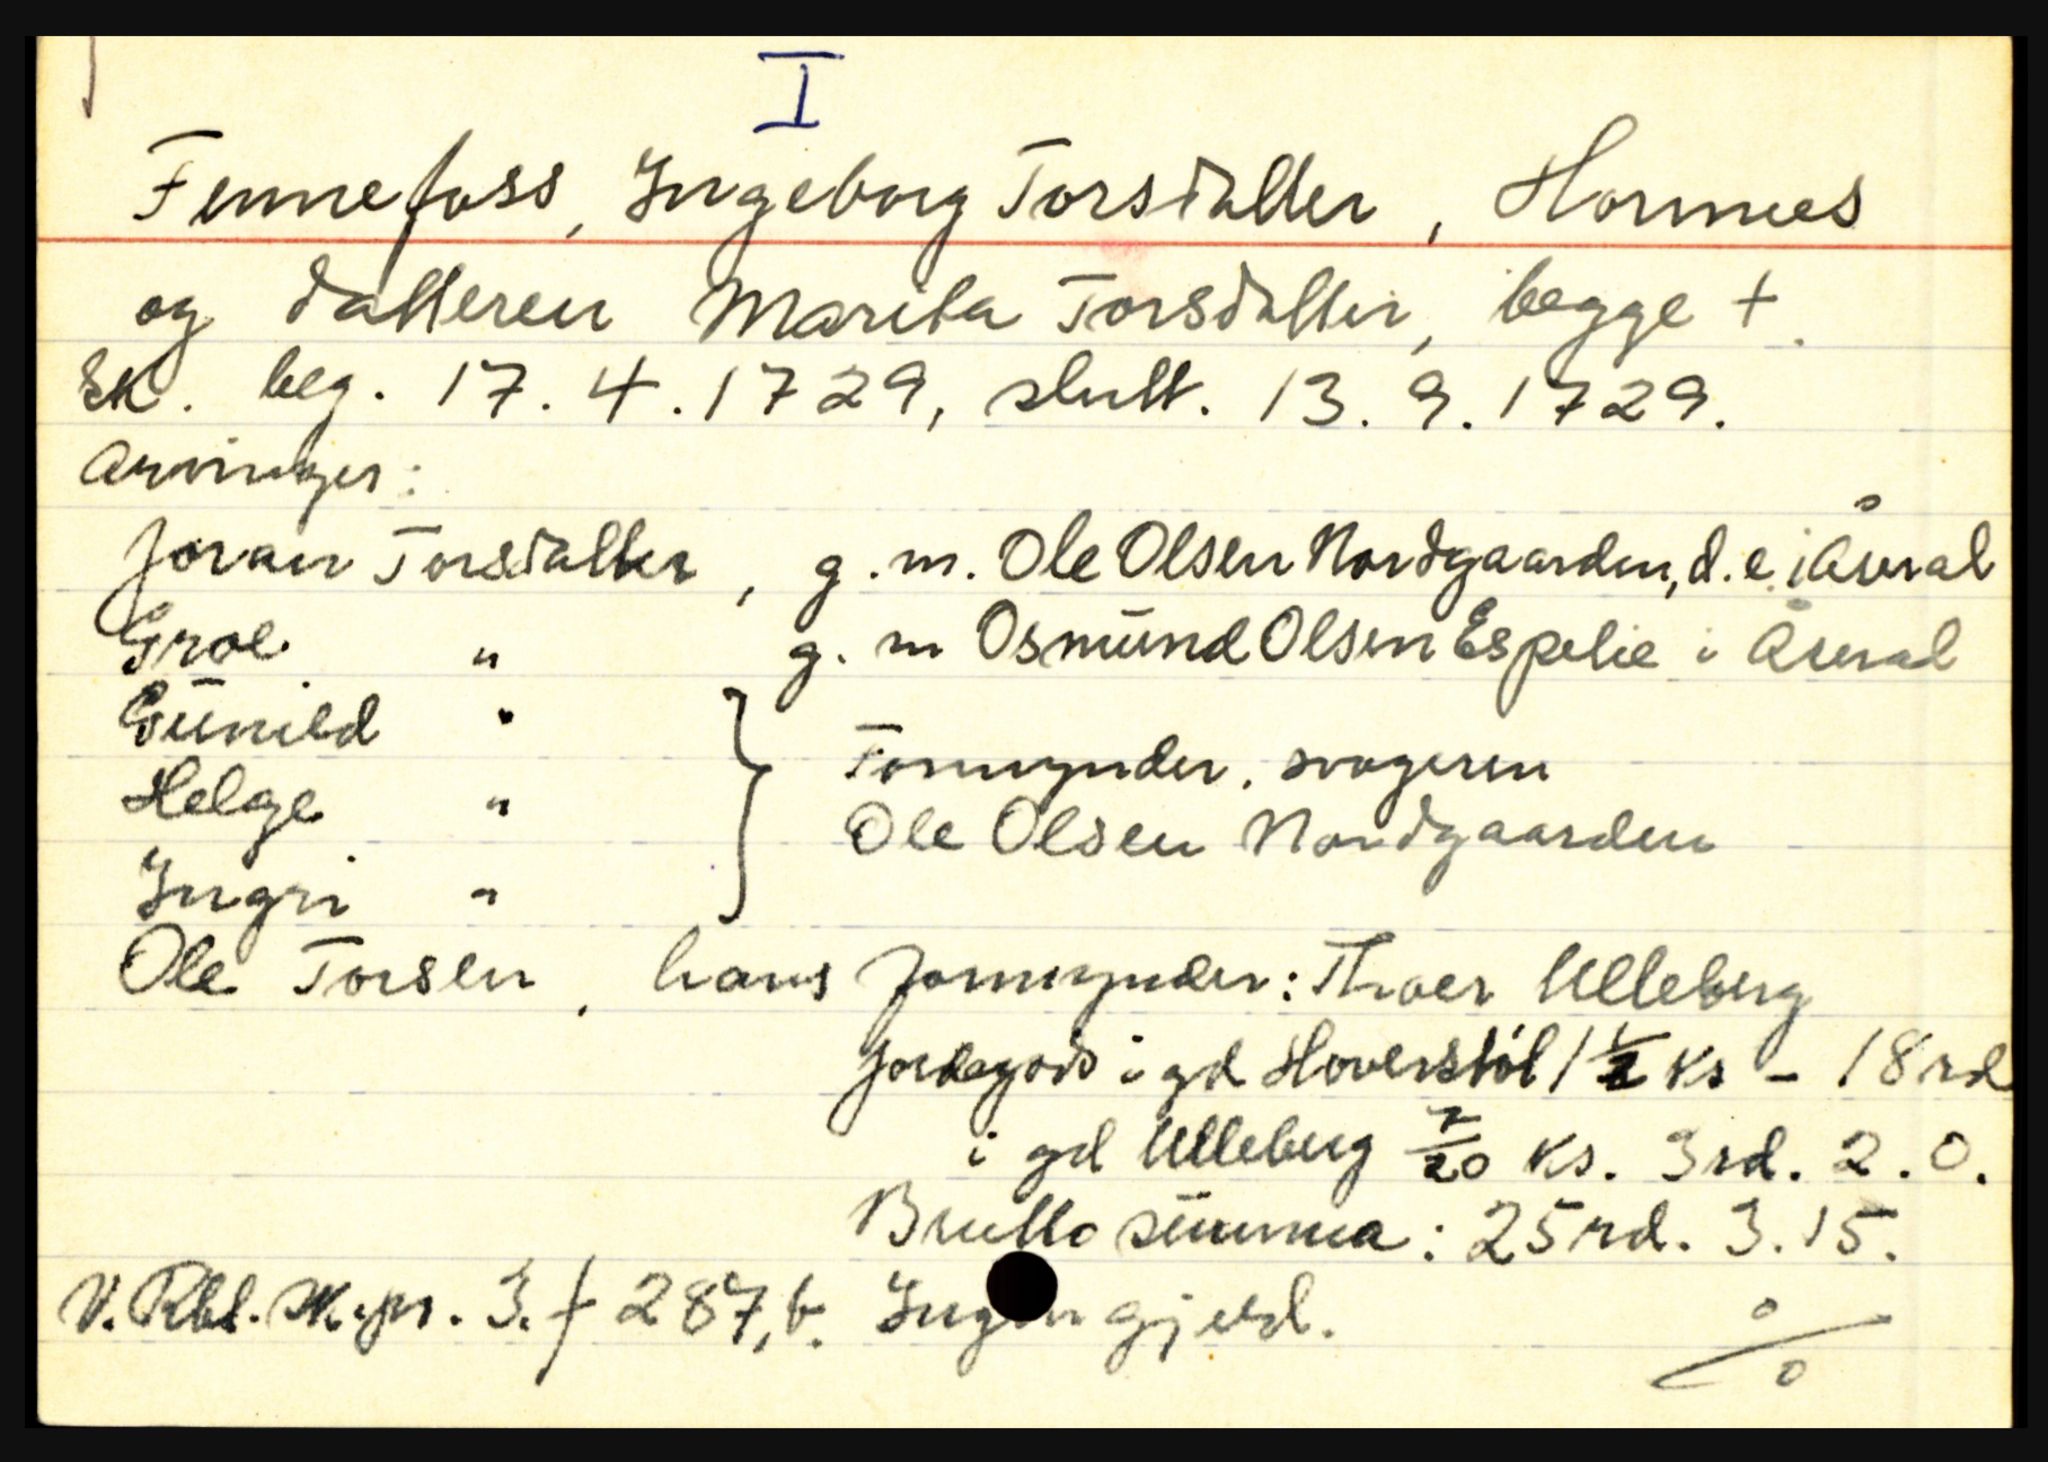 I
Fennefoss, Ingeborg Torsdatter, Hornnes
og datteren Marita Torsdatter, begge +.
Sk. beg. 17.4.1729, slutt. 13.9.1729.
Arvinger:
Joran Torsdatter, g.m. Ole Olsen Nordgaarden, d.e. i Åseral
Groe " g.m Osmund Olsen Espelie i Åseral
Gunild "
Helge " } Formynder, svogeren
Ole Olsen Nordgaarden
Ingri "
Ole Torsen, hans formynder: Thoer Ulleberg
Jordegods i gd Hoverstöl 1 1/2 ks - 18 rd
i gd Ulleberg 7/20 ks. 3 rd. 2. 0.
Brutto summa: 25 rd. 3. 15.
V. Rbl. sk.pr. 3. f 287,b. Ingen gjeld.
%